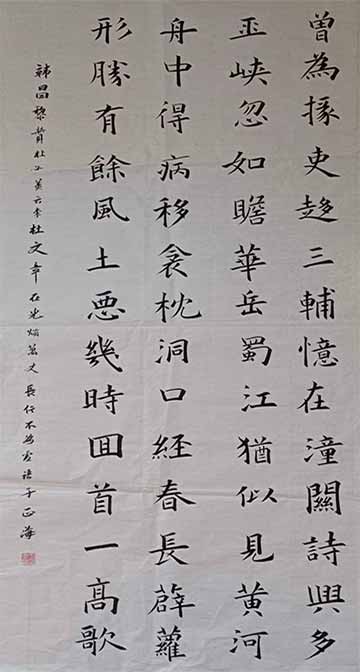 曾為掾吏趍三輔憶在潼關詩興多
巫峽忽如瞻華岳蜀江猶似見黃河
舟中得病移衾枕洞口經春長薜蘿
形勝有餘風土悪幾時囬首一高歌
昌黎贊杜李杜文章在光焰萬丈長不為虛語